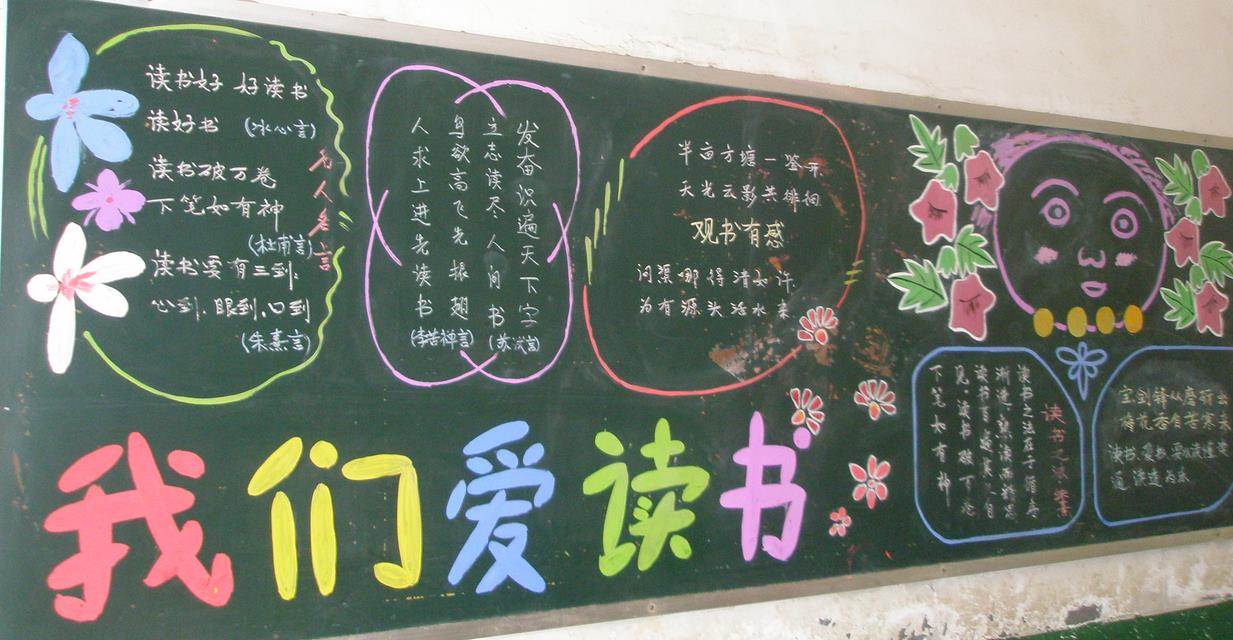 读书好 好读书
读好书 (冰心言)
读书破万卷
下笔如有神
(杜甫言)
读书要有三到:
心到.眼到.口到
(朱熹言)
名人名言
发奋识遍天下字
立志读尽人间书
(苏轼言)
鸟欲高飞先振翅
人求上进先读书
(李苦禅言)
半亩方塘一鉴开
天光云影共徘徊
观书有感
问渠哪得清如许
为有源头活水来
我们爱读书
读书之法
读书之法在于循序
渐进熟读而精思
读书百遍其义自
见读书破万卷
下笔如有神
宝剑锋从磨砺出
梅花香自苦寒来
读书.爱书